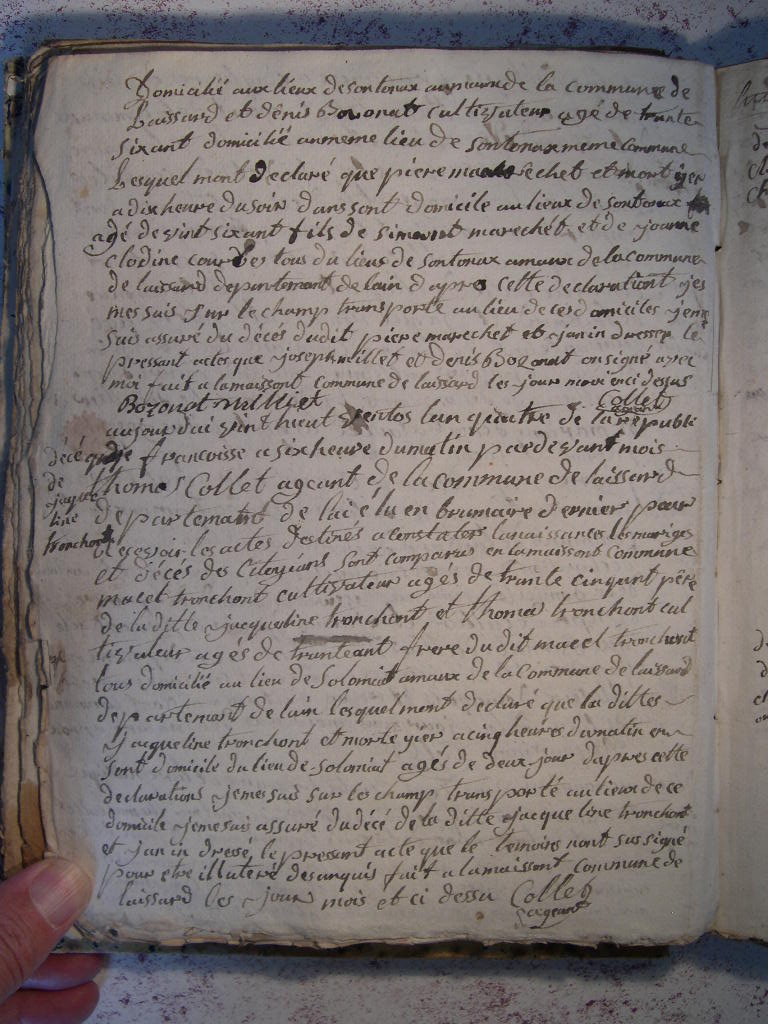 Domicilié aux lieux de sontonax amaux de la commune de
Laissard et dênis Bozonat cultivateur agé de trante
sixant domicilié au meme lieu de sontonax meme Commune
Lesquel mont déclaré que piere marechet et mort yer
a dix heure du soir dans sont domicile au lieux de sontonax
agé de vint six ant fils de simont marechet et de joanne
clodine tous du lieus de sontonax amaux de la commune
de laissard departemant de lain d'apres cette declarationt jes
mes suis sur le champ transporté au lieu de ces domiciles jeme
suis assuré du décés dudit piere marechet et jan in dresser le
pressant actes que joseph millet et denis Bozonat on signé avec
moi fait a la maissont commune de laissard les jour moi enci dessus
Bozonat milliet Collet
ageant
aujourdui vint heut ventos lan quatre de la republi
que francoisse a six heure du matin par devant mois
thomas Collet ageant de la commune de laissard
departemant de lai élu en brumaire dernier pour
resesvoir les actes destinés a constater la naissances les mariges
et décés des Citoyéans sont comparus en la maissont Commune
macel tronchont cultivateur agés de trante cinquant pêre
de la ditte jacqueline tronchont et thoma tronchont cul
tivateur agés de tranteant frere du dit macel tronchont
tous domicilié au lieu de Solomiat amaux de la Commune de laissard
departemant de lain lesquel mont declaré que la dittes
jacqueline tronchont et morte yier a cinq heures du matin en
sont domicile du lieu de solomiat agés de deux jour dapres cette
declarations jemesuis sur le champ transporté au lieux de ce
domicile jemesuis assuré du décé de la ditte jacqueline tronchont
et jan in dressé le pressant acte que le temoires nont sus signé
pour etre illuteré des anquis fait a la maissont commune de
laissard les jour mois et ci dessu Collet
ageant
décé
de
jaque
line
tronchont